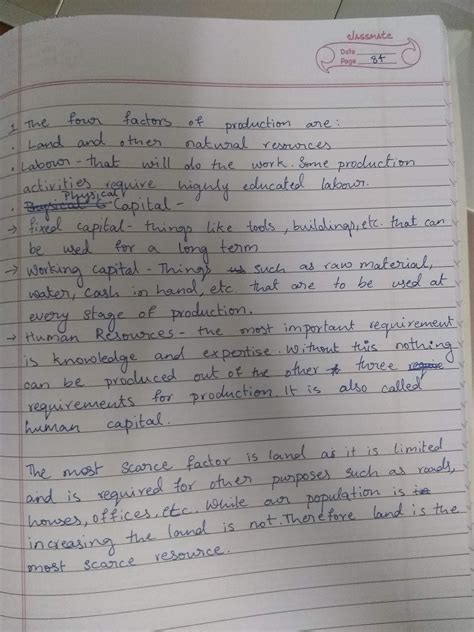 classmate
Date
Page 84
1 The four factors of production are:
• Land and other natural resources
• Labour - that will do the work. Some production
activities require highly educated labour.
• Physical Capital -
→ fixed capital - things like tools, buildings, etc. that can
be used for a long term
→ Working capital - Things such as raw material,
water, cash in hand, etc. that are to be used at
every stage of production.
→ Human Resources - the most important requirement
is knowledge and expertise. Without this nothing
can be produced out of the other three
requirements for production. It is also called
human capital.
The most scarce factor is land as it is limited
and is required for other purposes such as roads,
houses, offices, etc. While our population is
increasing the land is not. Therefore land is the
most scarce resource.